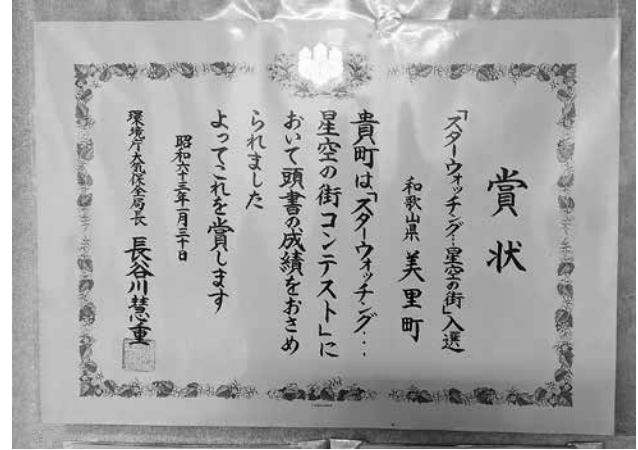 賞状
「スターウォッチング‥星空の街」入選
和歌山県 美里町
貴町は「スターウォッチング‥
星空の街コンテスト」に
おいて頭書の成績をおさめ
られました
よってこれを賞します
昭和六十三年一月三十日
環境庁大気保全局長 長谷川慧重